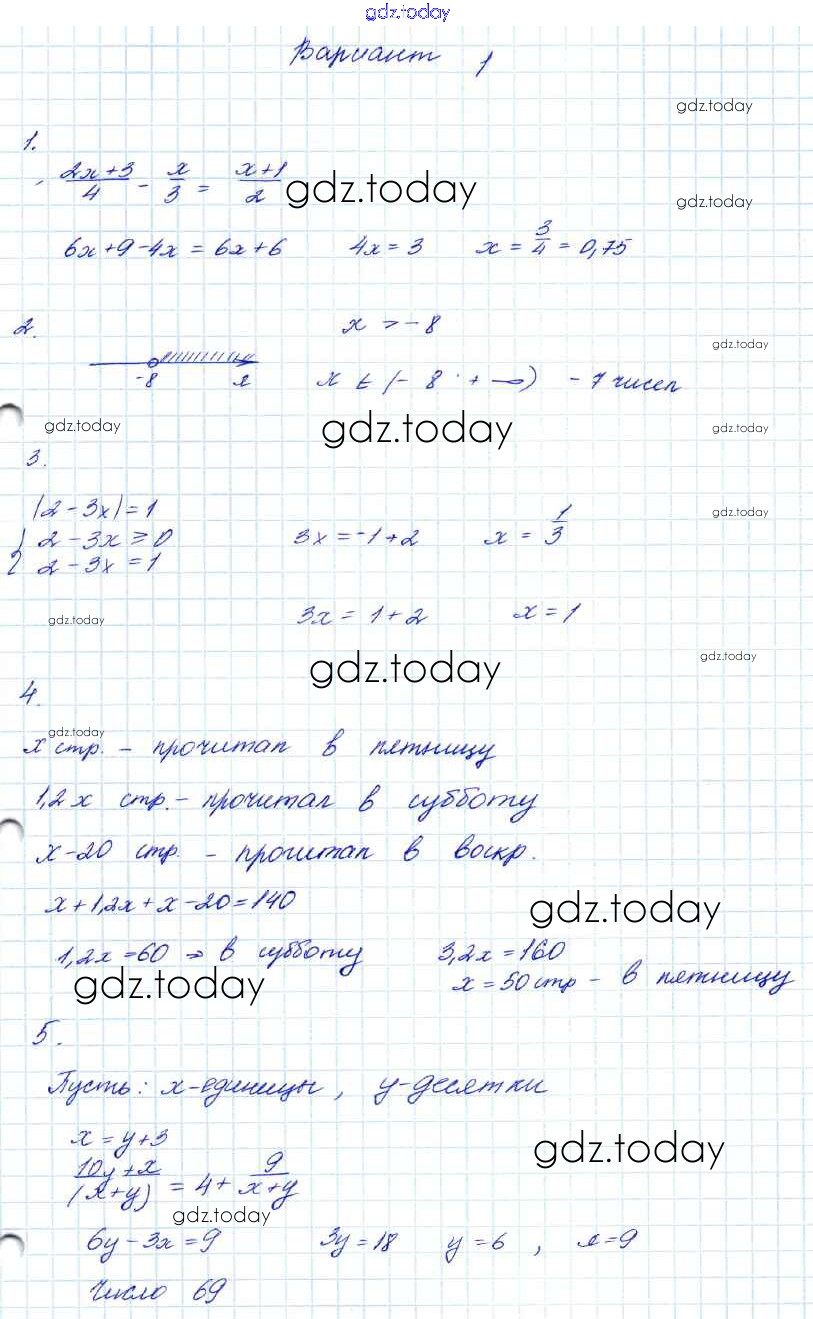 gdz.today
Вариант 1
gdz.today
1.
(2x+3)/4 - x/3 = (x+1)/2 gdz.today gdz.today
6x+9-4x = 6x+6 4x = 3 x = 3/4 = 0,75
2. x > -8
gdz.today
-8 x x ∈ (-8; +∞) - 7 чисел
gdz.today gdz.today gdz.today
3.
|2-3x|=1 gdz.today
2-3x ≥ 0 3x = -1+2 x = 1/3
2-3x = 1
gdz.today 3x = 1+2 x = 1
gdz.today gdz.today
4.
gdz.today
x стр. - прочитал в пятницу
1,2x стр. - прочитал в субботу
x-20 стр. - прочитал в воскр.
x+1,2x+x-20=140 gdz.today
1,2x=60 => в субботу 3,2x=160
gdz.today x = 50 стр - в пятницу
5.
Пусть: x-единицы, y-десятки
x = y+3 gdz.today
(10y+x)/(x+y) = 4 + 9/(x+y)
gdz.today
6y-3x=9 3y=18 y=6, x=9
Число 69